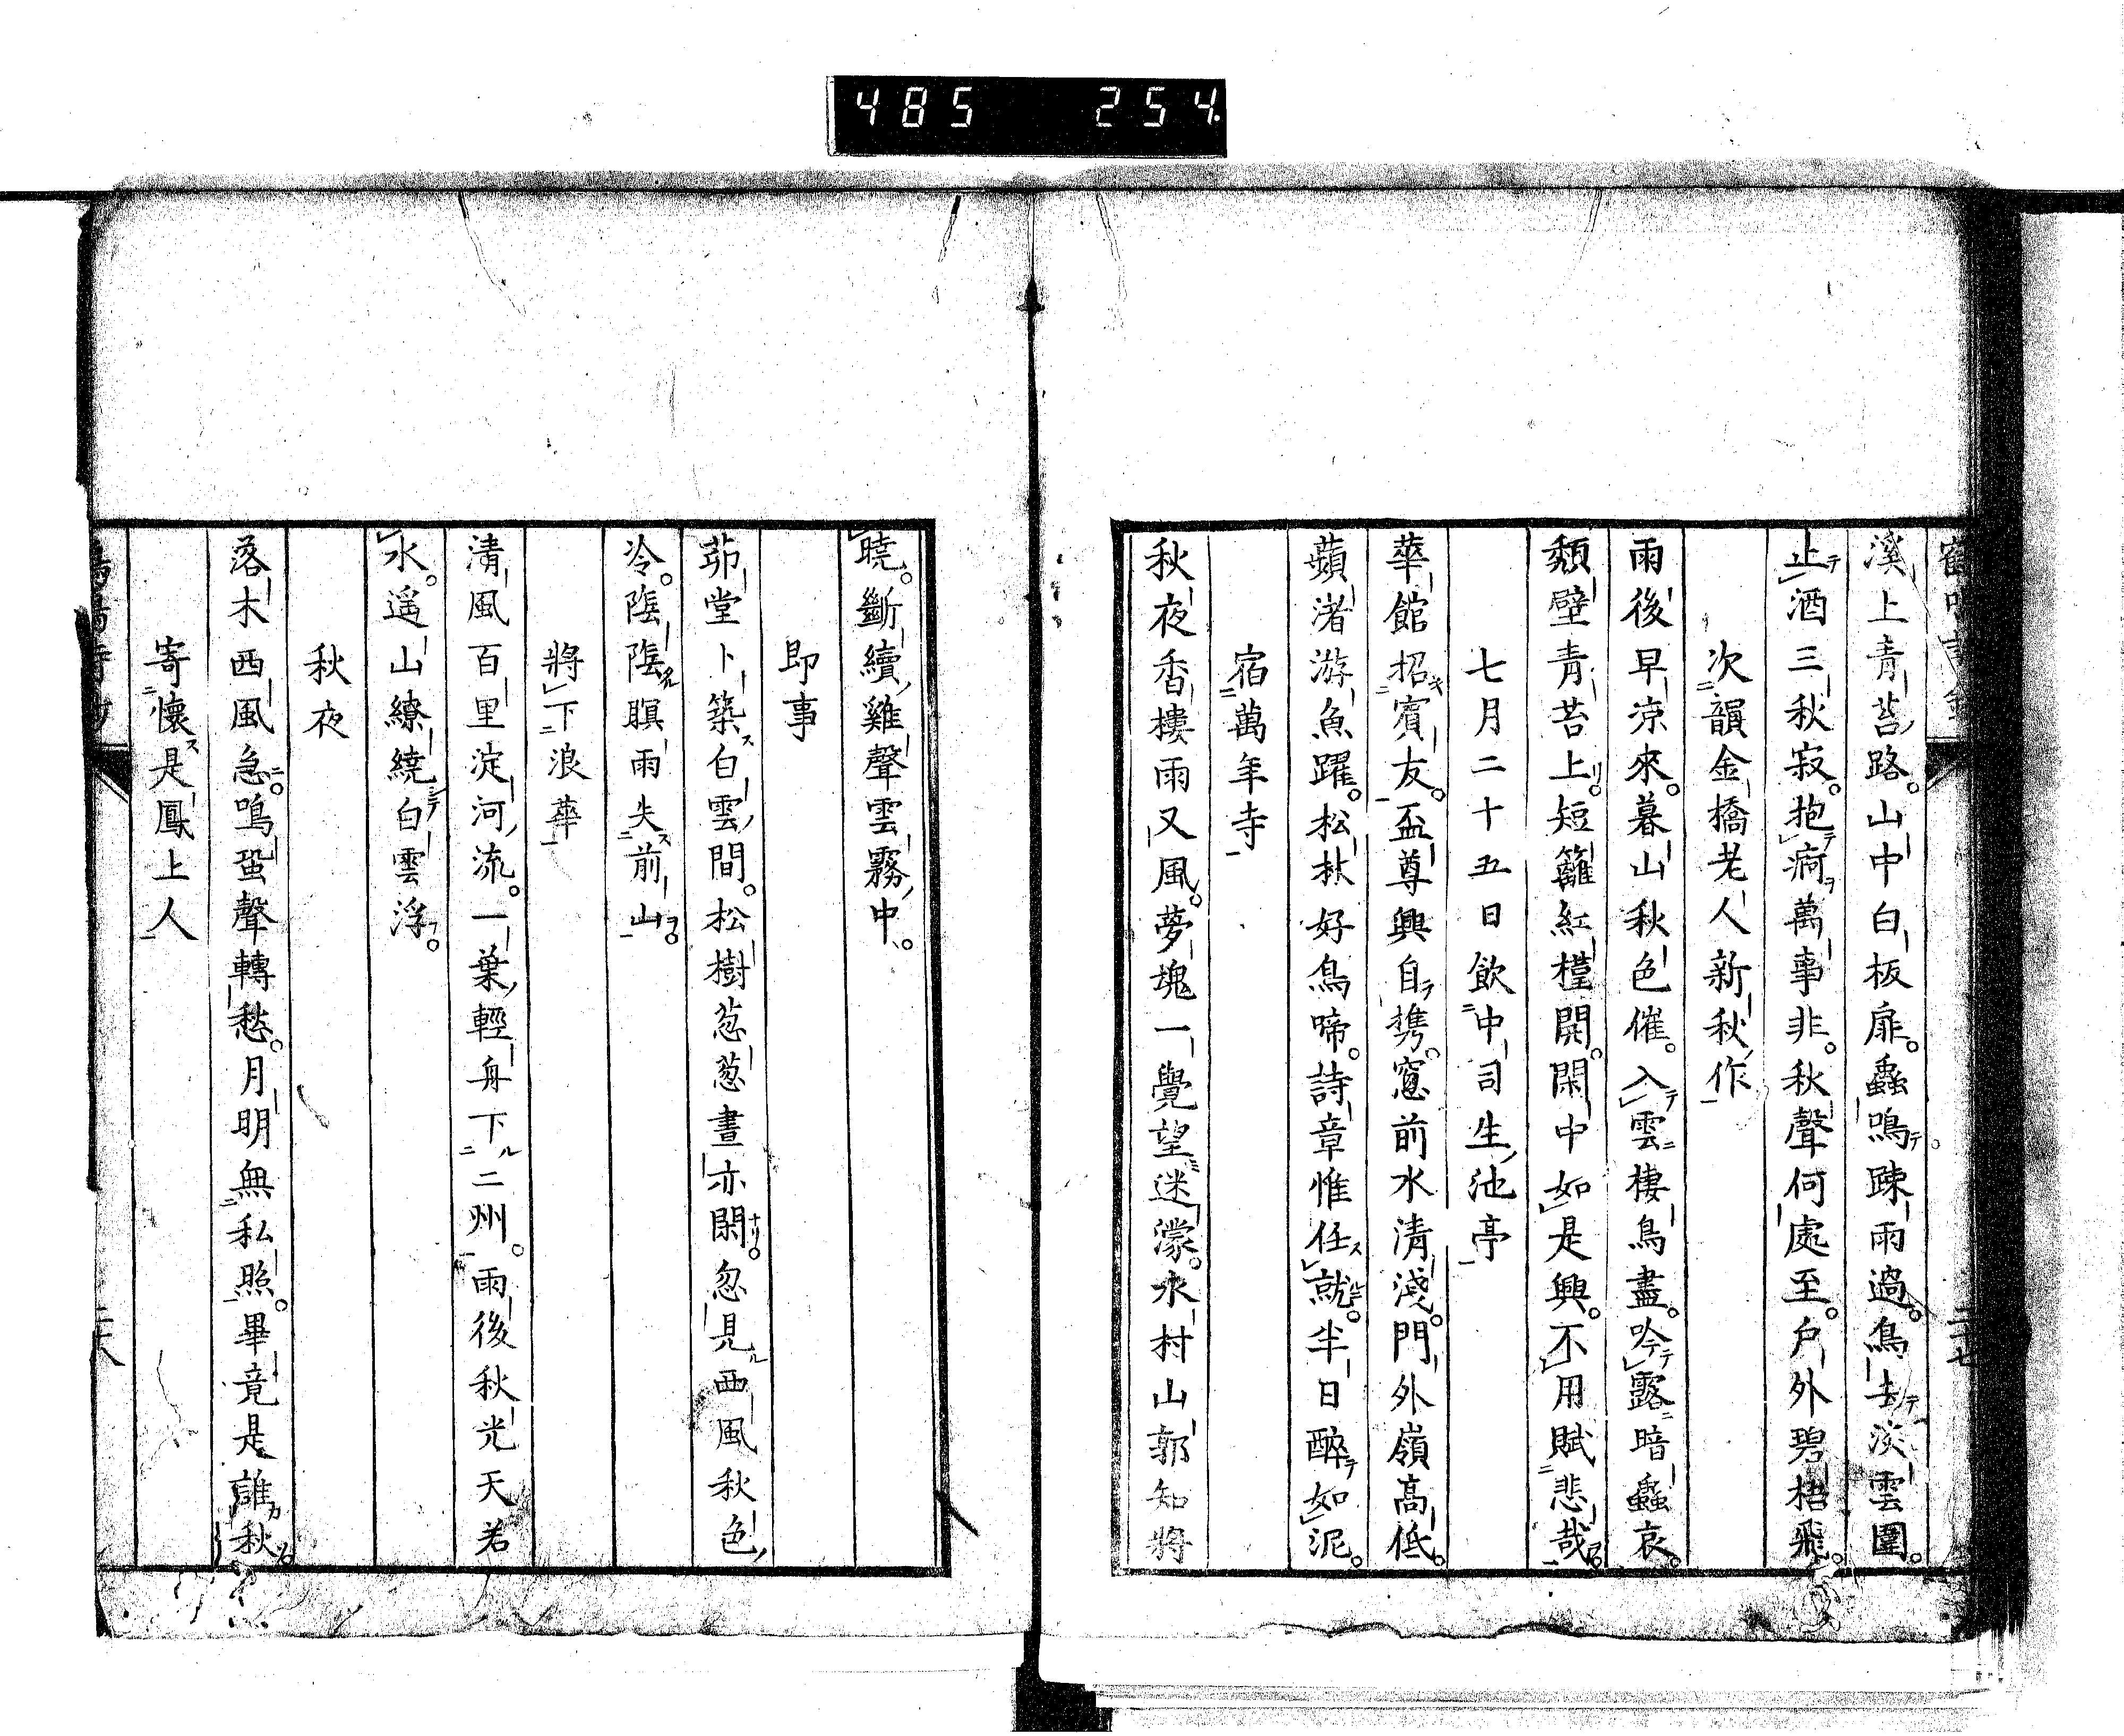 485 254.
溪上青苔路。山中白板扉。蟲鳴テ。踈雨過。鳥去テ淡雲圍。
止テ酒三秋寂。抱テ痾ヲ萬事非。秋聲何處至。戶外碧梧飛。
次韻金橋老人新秋作
雨後早涼來。暮山秋色催。入テ雲ニ棲鳥盡。吟テ露ニ暗蟲哀。
頹壁青苔上リ。短籬紅槿開。閑中如是興。不用賦悲哉
七月二十五日飲中司生池亭
華館招キ賓友。盃尊興自テ携。窓前水清淺。門外嶺高低。
蘋渚游魚躍。松林好鳥啼。詩章惟任ス就ルニ。半日醉テ如泥。
宿萬年寺
秋夜香樓雨又風。夢魂一覺望迷濛。水村山郭知將
曉。斷續雞聲雲霧中。
即事
茆堂卜築ス白雲間。松樹葱葱晝亦閑ナリ。忽見ル西風秋色
冷。陰陰瞑雨失ス前山ヲ。
將下浪華
清風百里淀河流。一葉輕舟下ル二州。雨後秋光天若
水。遥山繚繞シテ白雲浮フ。
秋夜
落木西風急ニ。鳴蛩聲轉愁。月明無私照。畢竟是誰カ秋
寄懷ス是鳳上人
二十七